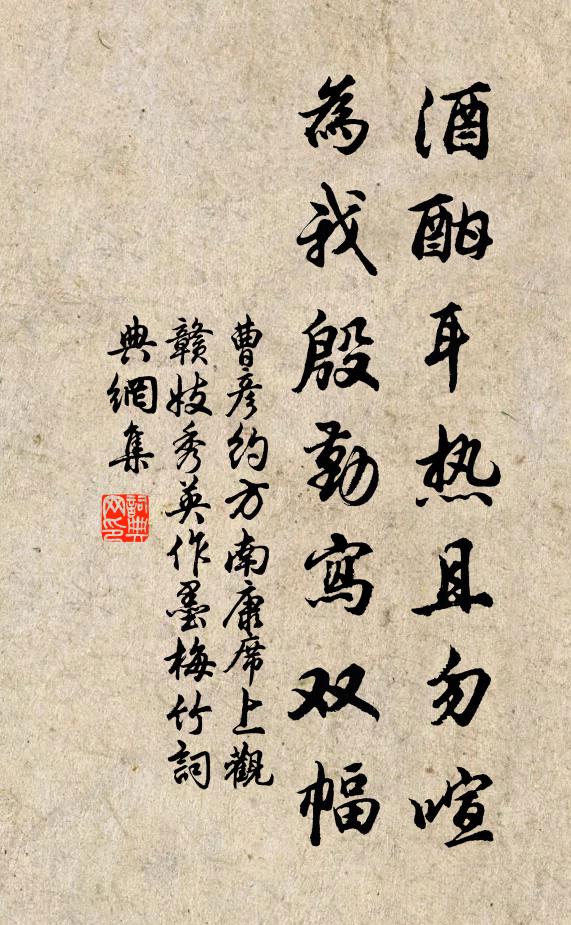 酒酣耳热且勿喧
為我殷勤寫双幅
曹彦约方南康席上觀
赣妓秀英作墨梅竹詞
典網集
詞典
网印